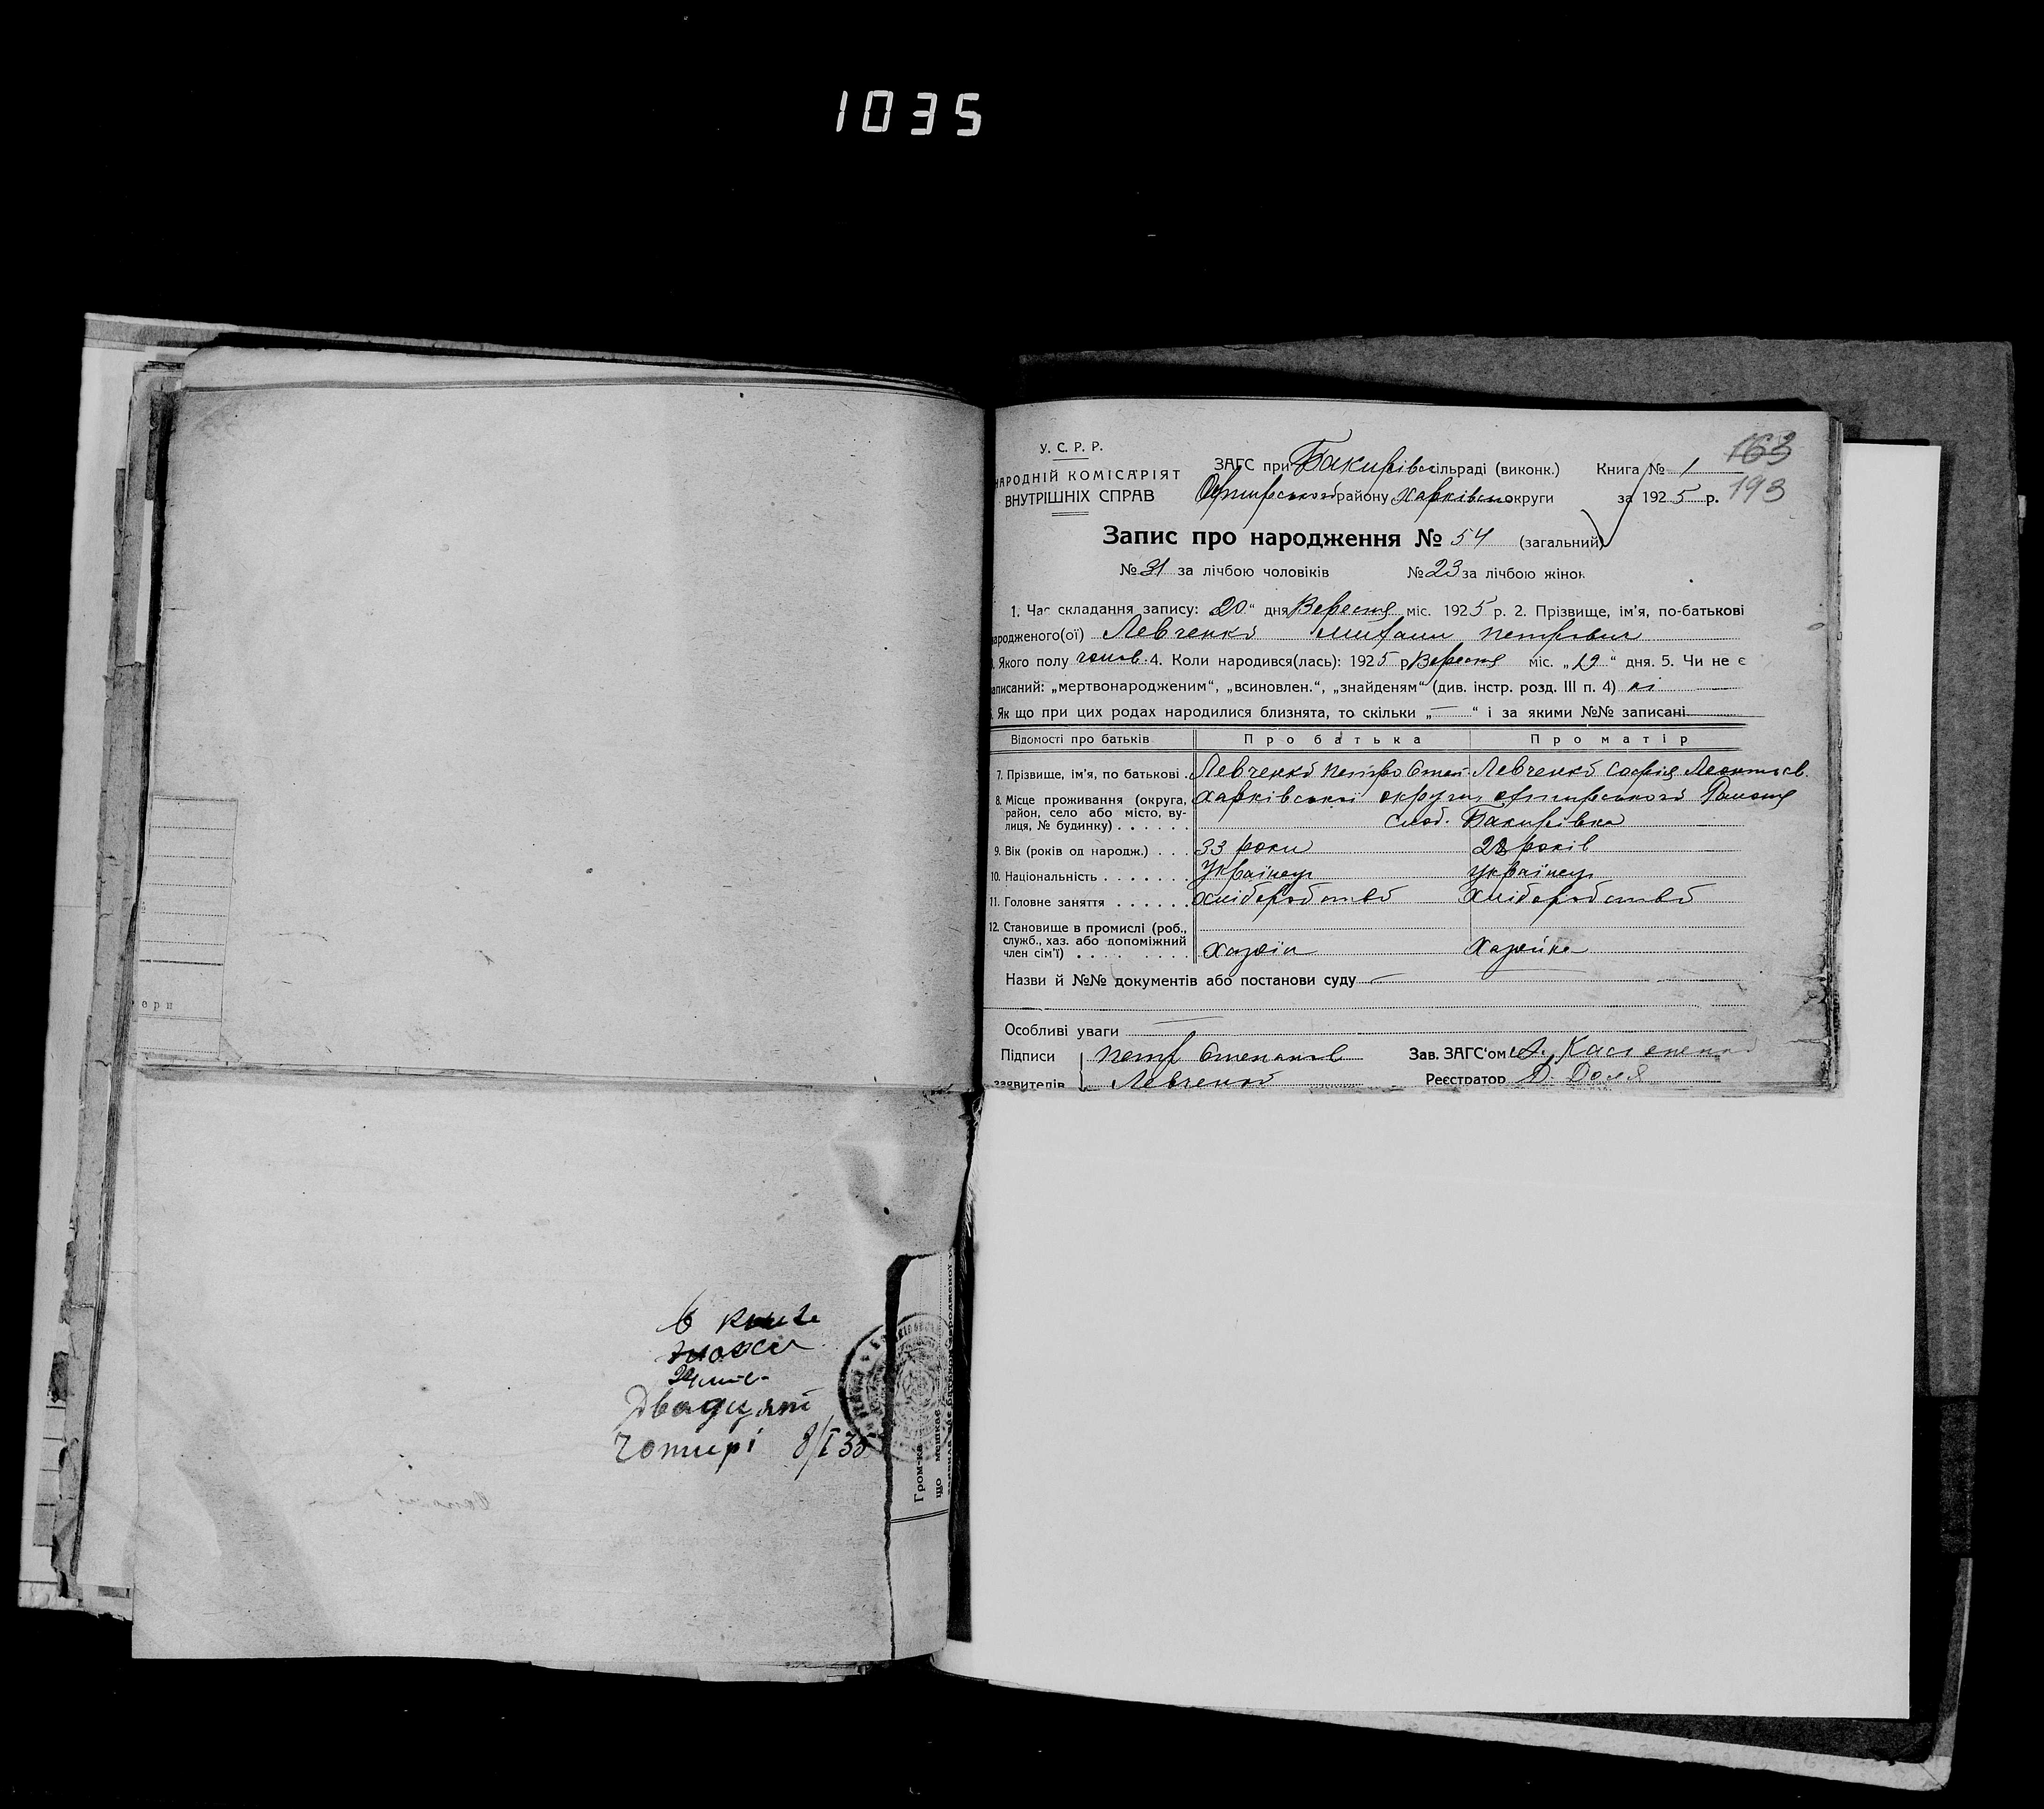 1035
о р и
В книзі
24 лис.
Двадцят
Чотирі 8/I 35
Гром-ка
що мешкає
У. С. Р. Р.
НАРОДНІЙ КОМІСАРІЯТ
ВНУТРІШНІХ СПРАВ
ЗАГС при Бакирівс сільраді (виконк.) Книга № 1 163
Охтирського району Харківсько округи за 1925 р. 193
Запис про народження № 54 (загальний)
№ 31 за лічбою чоловіків № 23 за лічбою жінок
1. Час складання запису: „20“ дня Вересня міс. 1925 р. 2. Прізвище, ім’я, по-батькові
народженого(ої) Левченко Михайл Петрович
3. Якого полу чолов. 4. Коли народився(лась): 1925 р Вересня міс. „19“ дня. 5. Чи не є
записаний: „мертвонародженим“, „всиновлен.“, „знайденям“ (див. інстр. розд. III п. 4) ні
6. Як що при цих родах народилися близнята, то скільки „—“ і за якими №№ записані
Відомості про батьків Про батька Про матір
7. Прізвище, ім’я, по батькові . Левченко Петро Степ. Левченко Софія Леонтієв.
8. Місце проживання (округа, Харківської округи, Охтирського Району
район, село або місто, ву-
лиця, № будинку) . . . . . . Слоб. Бакирівка
9. Вік (років од народж.) . . . 33 роки 28 років
10. Національність . . . . . . . Українец Українец
11. Головне заняття . . . . . . Хліборобство Хліборобство
12. Становище в промислі (роб.,
служб., хаз. або допоміжний
член сім’ї) . . . . . . . . Хазяїн Хазяйка
Назви й №№ документів або постанови суду —
Особливі уваги —
Підписи Петр Степанов Зав. ЗАГС‘ом
заявителів Левченко Реєстратор Д. Доля